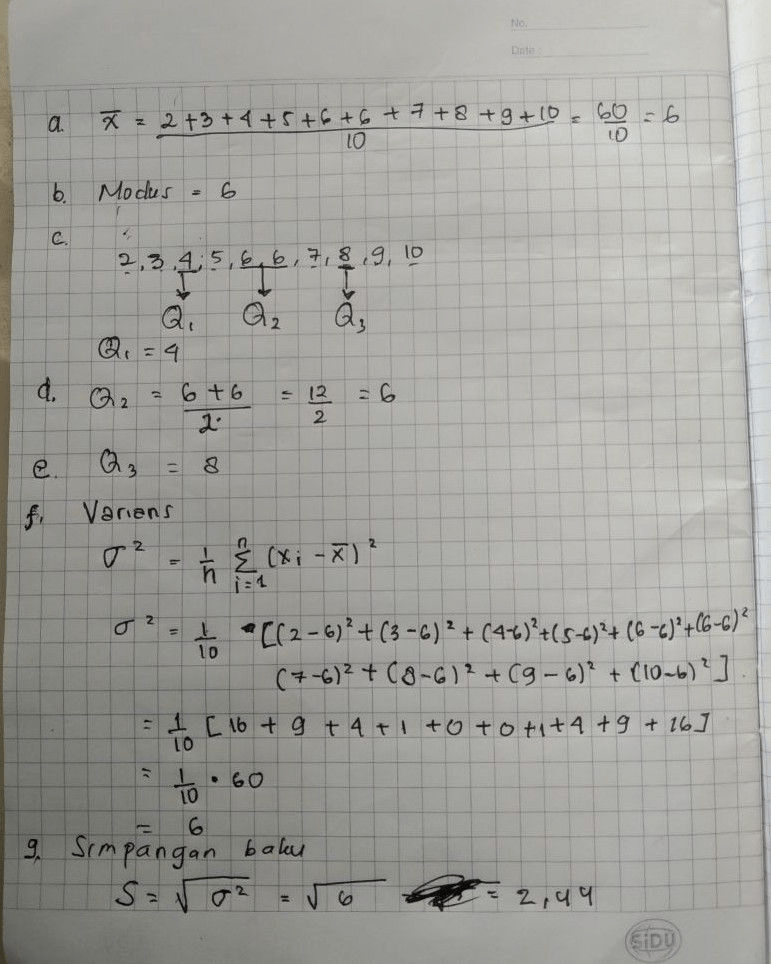 No.
Date :
a. x̄ = (2 + 3 + 4 + 5 + 6 + 6 + 7 + 8 + 9 + 10)/10 = 60/10 = 6
b. Modus = 6
c.
2, 3, 4, 5, 6, 6, 7, 8, 9, 10
Q₁ Q₂ Q₃
Q₁ = 4
d. Q₂ = (6 + 6)/2 = 12/2 = 6
e. Q₃ = 8
f. Variens
σ² = 1/n Σ (xi - x̄)² n i=1
σ² = 1/10 [(2-6)² + (3-6)² + (4-6)² + (5-6)² + (6-6)² + (6-6)²
(7-6)² + (8-6)² + (9-6)² + (10-6)²]
= 1/10 [16 + 9 + 4 + 1 + 0 + 0 + 1 + 4 + 9 + 16]
= 1/10 • 60
= 6
g. Simpangan baku
S = √σ² = √6 = 2,44
SiDU